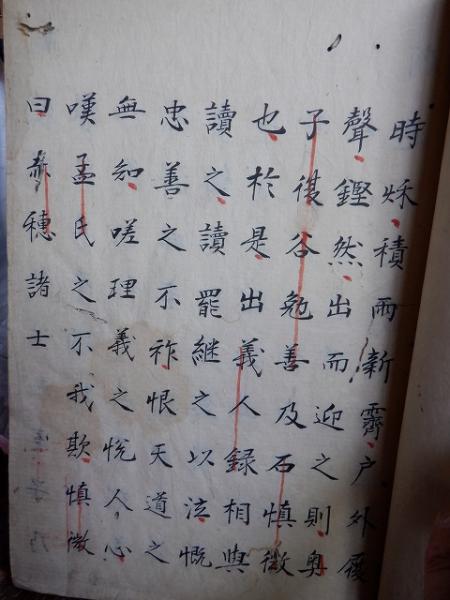 時秌積雨新霽户外履
聲鏗然出而迎之則奥
子復谷勉善及石慎微
也於是出義人録相與
讀之讀罷継之以泣慨
忠善之不祚恨天道之
無知嗟理義之悅人心
嘆孟氏之不我欺慎微
曰赤穗諸士